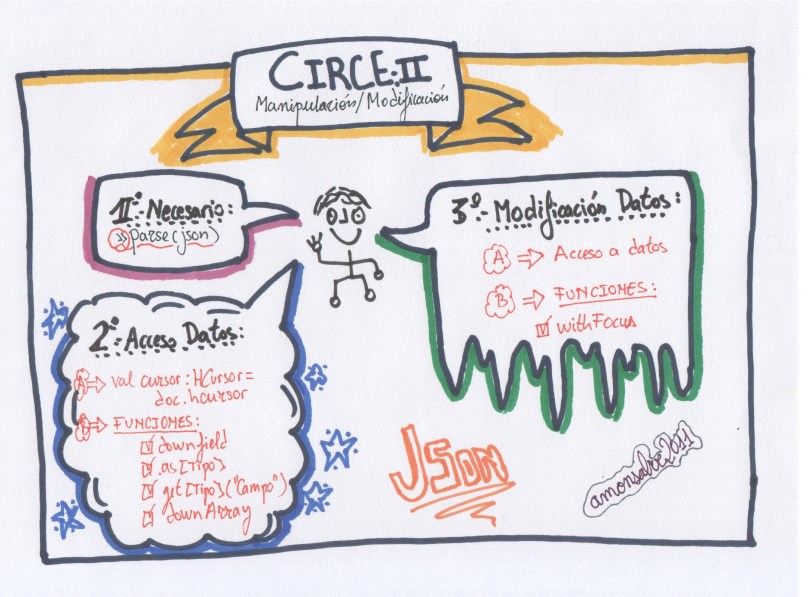 CIRCE:II
Manipulación/Modificación
1º.- Necesario:
>> parse(json)
2º.- Acceso Datos:
A ⇒ val cursor: HCursor=
doc.hcursor
B ⇒ FUNCIONES:
☑ downfield
☑ as[Tipo]
☑ get[Tipo]("Campo")
☑ downArray
3º.- Modificación Datos:
A ⇒ Acceso a datos
B ⇒ FUNCIONES:
☑ withFocus
JSON
amonsalve2011